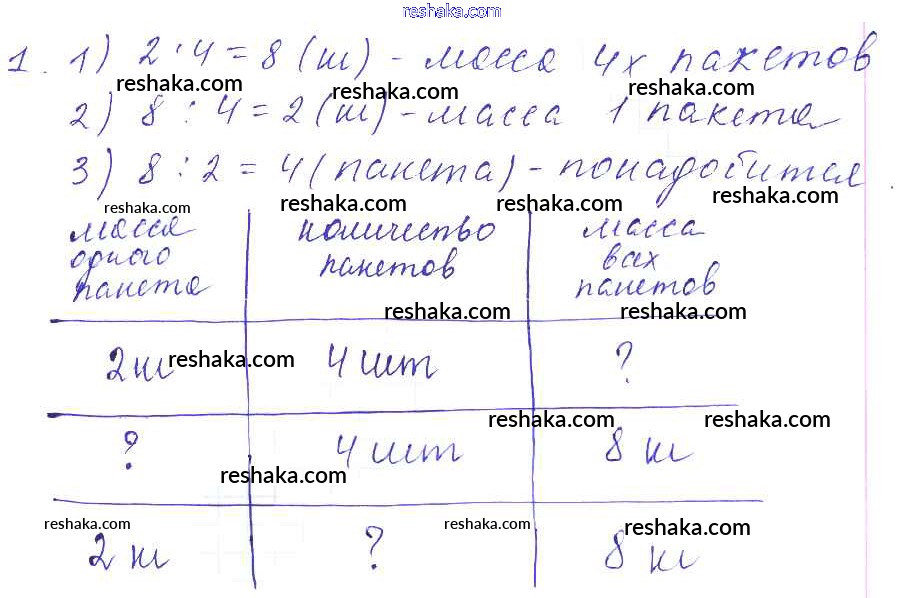 reshaka.com
1. 1) 2 · 4 = 8 (кг) - масса 4х пакетов
reshaka.com reshaka.com reshaka.com
2) 8 : 4 = 2 (кг) - масса 1 пакета
3) 8 : 2 = 4 (пакета) - понадобится
reshaka.com reshaka.com reshaka.com reshaka.com
масса одного пакета количество пакетов масса всех пакетов
reshaka.com reshaka.com
2 кг reshaka.com 4 шт ?
reshaka.com reshaka.com
? 4 шт 8 кг
reshaka.com
reshaka.com reshaka.com reshaka.com
2 кг ? 8 кг